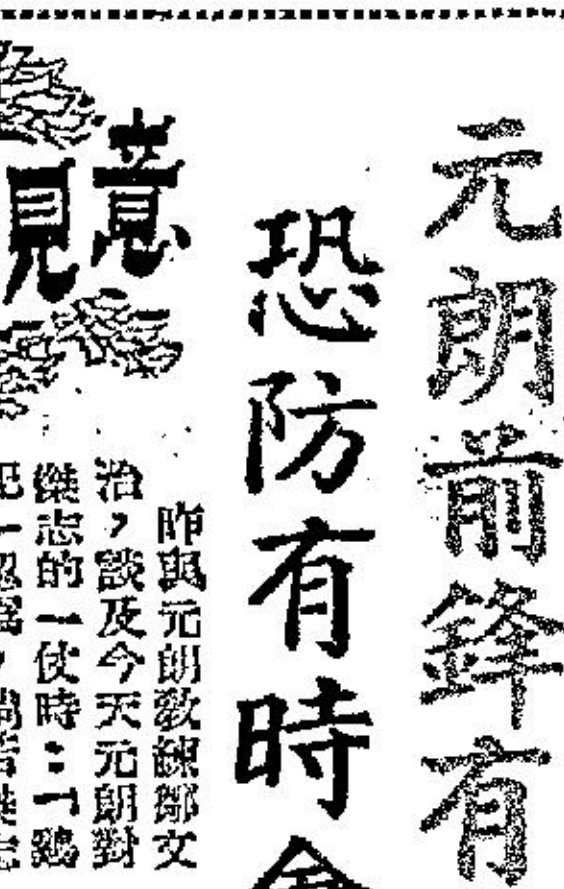 元朗前鋒有
恐防有時會
意見
昨與元朗敎練鄒文
治，談及今天元朗對
傑志的一仗時：「鷄